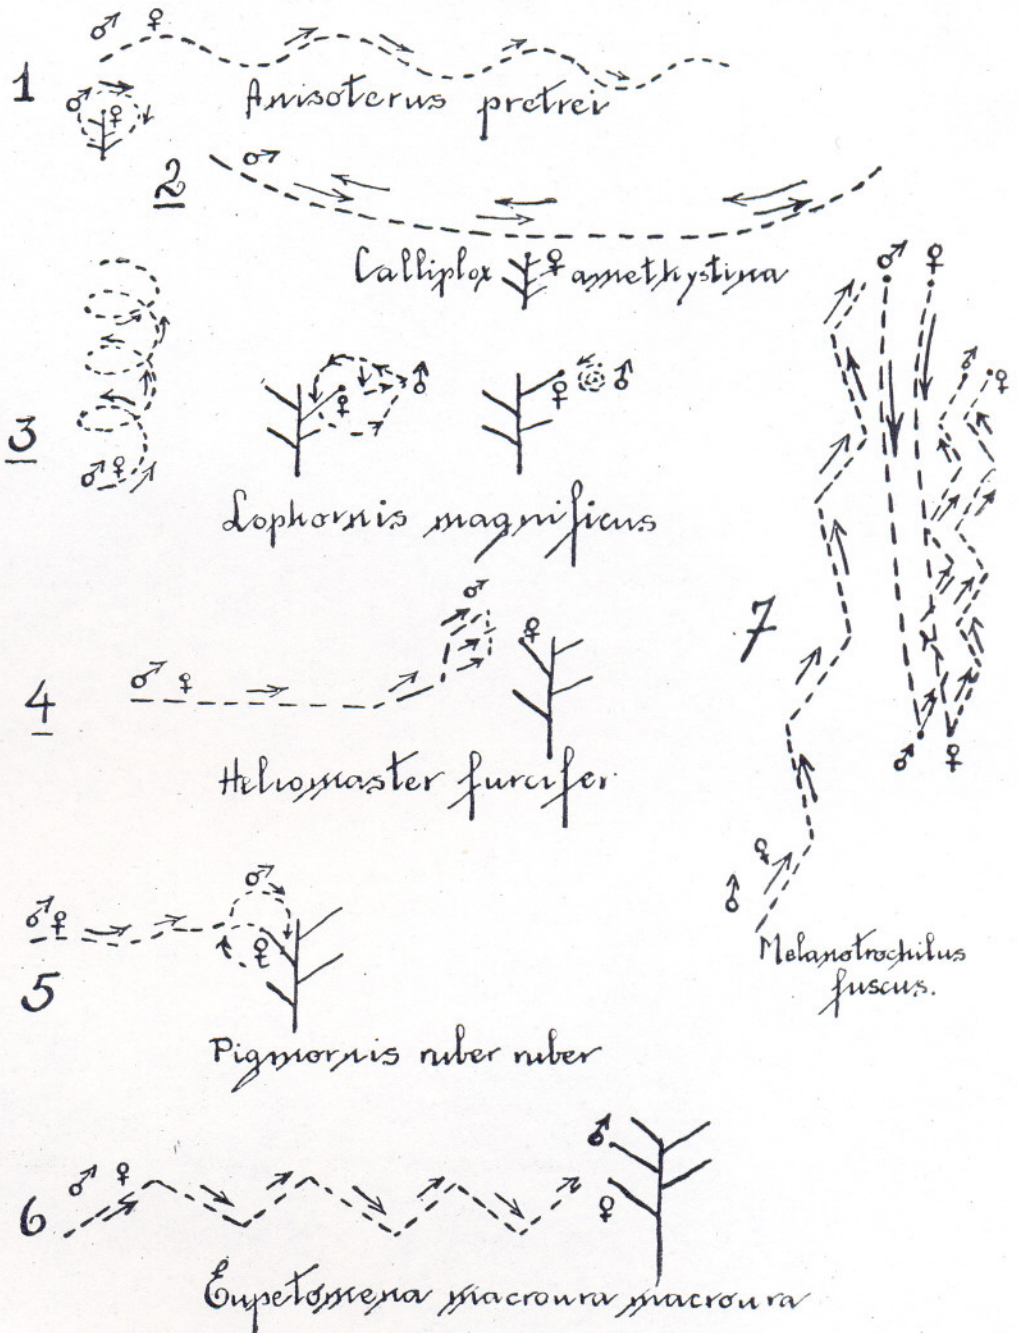 ♂ ♀
1
♂ ♀
Anisoterus pretrei
2 ♂
Calliplox ♀ amethystina
3
♂ ♀
♀ ♂
♀ ♂
Lophornis magnificus
4
♂ ♀
♂
♀
Heliomaster furcifer
5
♂ ♀
♂
♀
Pigmornis ruber ruber
6
♂ ♀
♂
♀
Eupetomena macroura macroura
7
♂ ♀
♂ ♀
♂ ♀
♂ ♀
Melanotrochilus
fuscus.